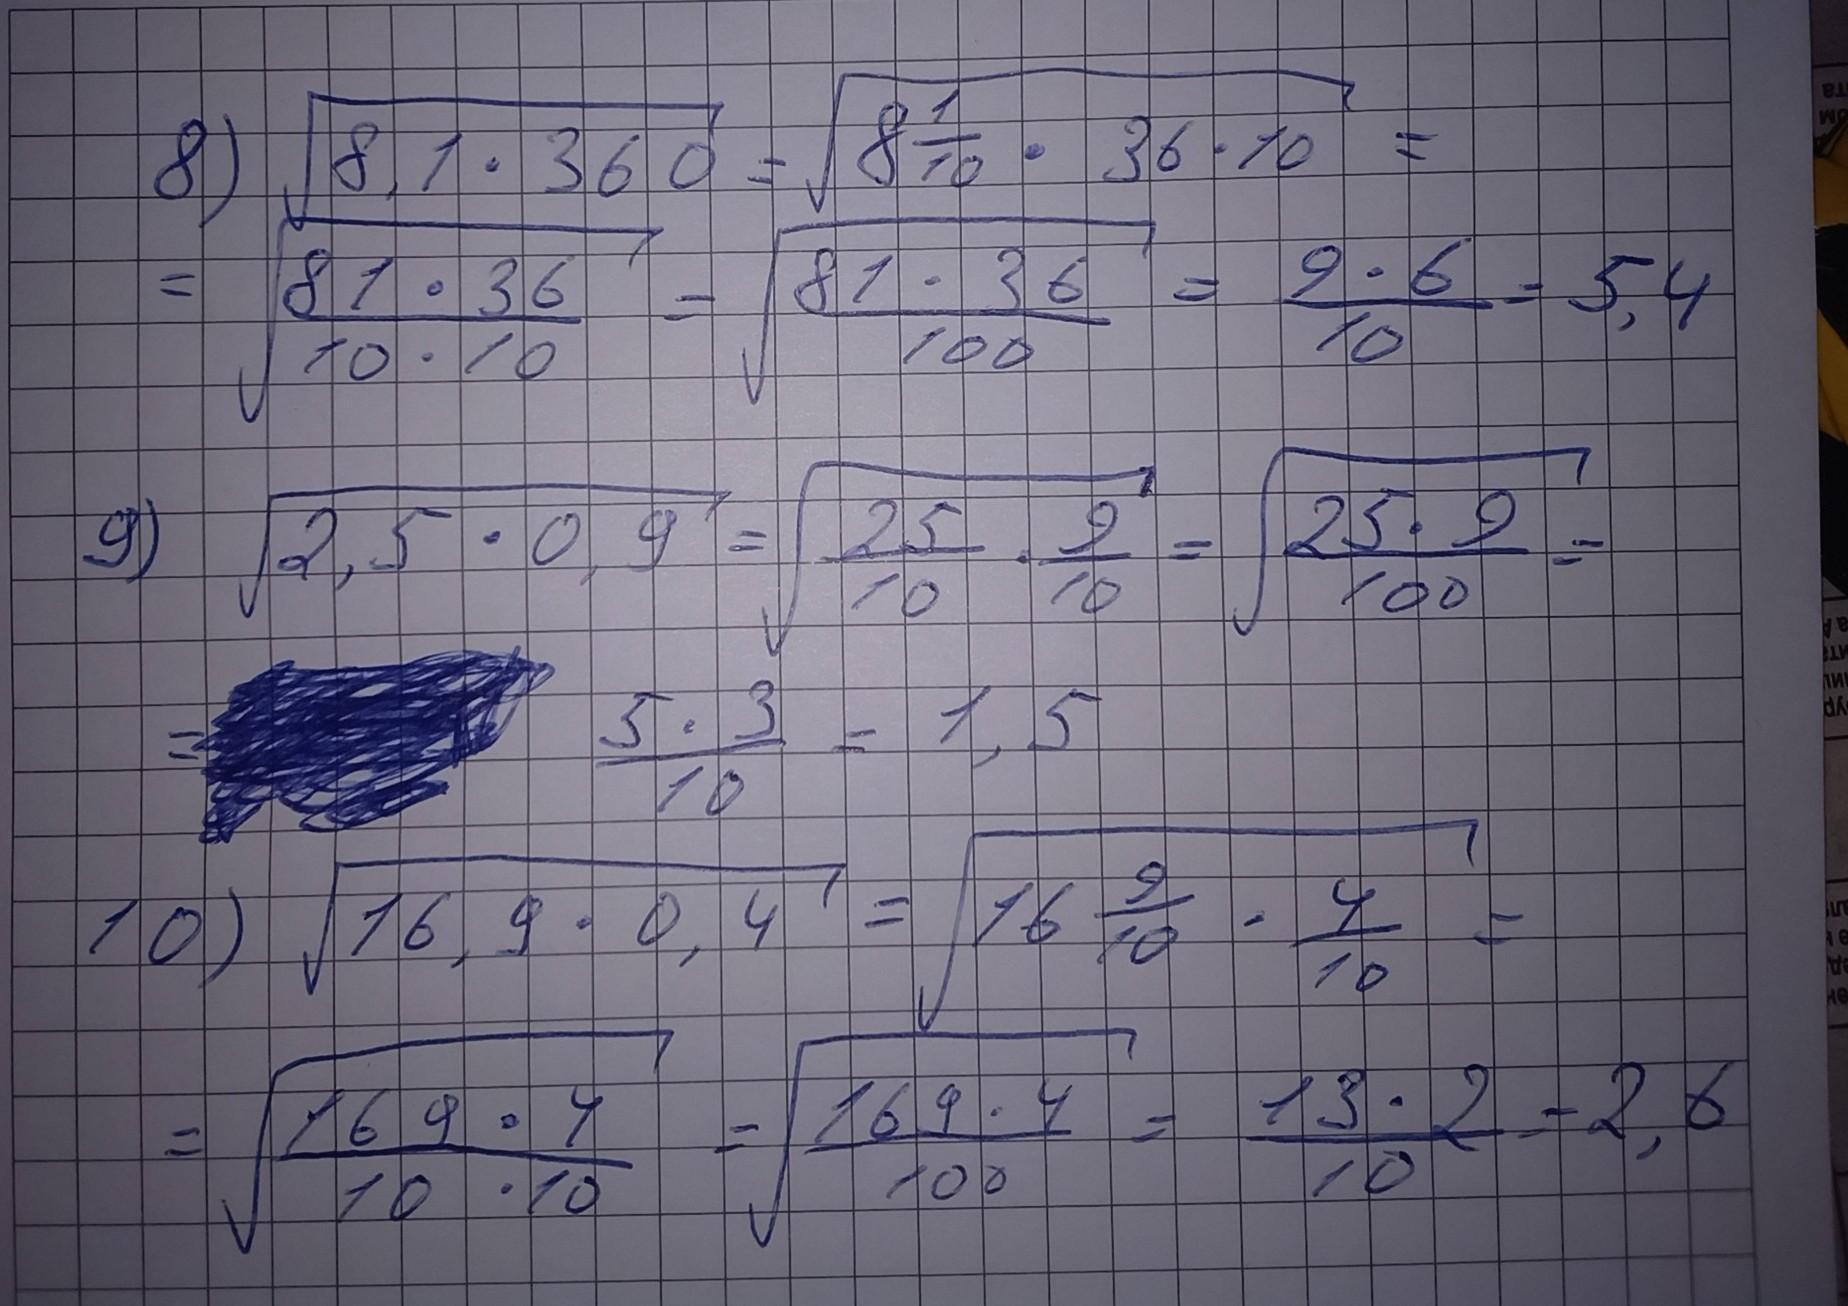 8) √(8,1 · 360) = √(8 1/10 · 36 · 10) =
= √((81 · 36)/(10 · 10)) = √((81 · 36)/100) = (9 · 6)/10 = 5,4
9) √(2,5 · 0,9) = √(25/10 · 9/10) = √((25 · 9)/100) =
= (5 · 3)/10 = 1,5
10) √(16,9 · 0,4) = √(16 9/10 · 4/10) =
= √((169 · 4)/(10 · 10)) = √((169 · 4)/100) = (13 · 2)/10 = 2,6